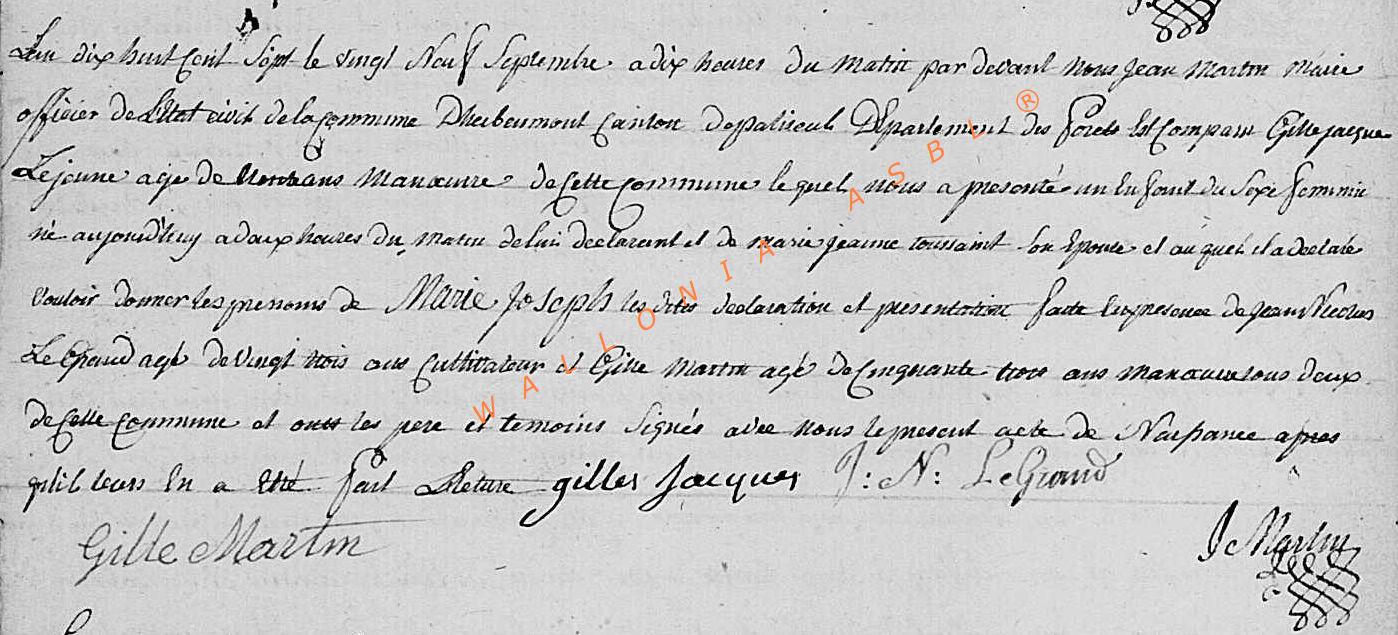 Lan dix huit Cent Sept le vingt Neuf Septembre a dix heures du Matin par devant Nous Jean Martin Maire
officier de Letat civil de la Commune Dherbeumont Canton de paliseul Département des forets Est Comparu Gille jacque
Lejeune agé de trente ans Manœuvre de Cette Commune le quel nous a presenté un Enfant du Sexe feminin
né aujourd'huy a deux heures du Matin de lui declarant et de marie jeanne toussaint son Epouse et au quel il a declaré
vouloir donner les prenoms de Marie Joseph les dites declaration et presentation faite En presence de Jean Nicolas
Le Grand agé de vingt trois ans Cultivateur et Gille Martin agé de Cinquante trois ans manœuvre tous deux
de Cette Commune et ont les pere et temoins Signés avec nous le present acte de Naissance apres
quil leurs En a Eté fait Lecture gilles Jacques J: N: LeGrand
Gille Martin
J Martin
WALLONIA ASBL ®